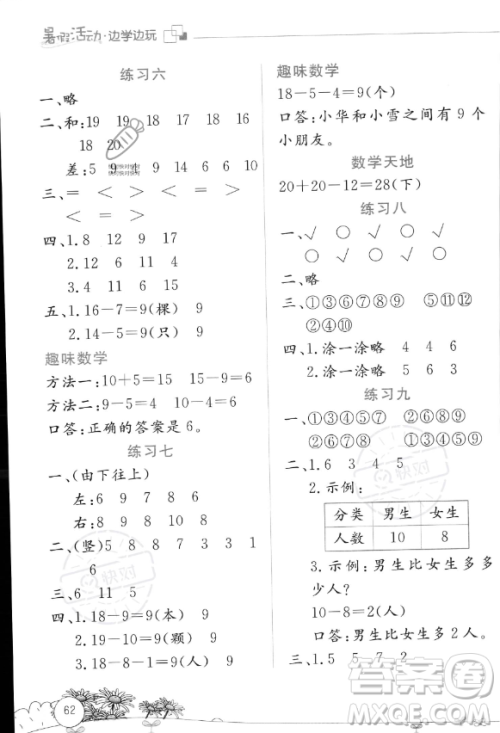 暑假活动·边学边玩
练习六
一、略
二、和:19 19 17 18 18 16
18 20
差:5 9 4 9 7 6 8 9
三、= < = >
< > < >
四、1.8 12 17 9
2.12 6 11 4
3.15 6 11 17
五、1.16-7=9(棵) 9
2.14-5=9(只) 9
趣味数学
方法一:10+5=15 15-9=6
方法二:9-5=4 10-4=6
口答:正确的答案是 6。
练习七
一、(由下往上)
左:6 9 7 9
右:8 8 9 6
二、(竖)5 8 8 8 7 9 9
6
三、6 11 5
四、1.18-9=9(本) 9
2.19-10=9(颗) 9
3.18-9=9(人) 9
62
趣味数学
18-5-4=9(个)
口答:小华和小雪之间有 9 个
小朋友。
数学天地
20+20-12=28(下)
练习八
一、√ ○ √ ○ √
○ √ ○ √
二、略
三、①③⑥⑦⑨ ①③⑤⑧
②④⑩
四、1.涂一涂略 4 4 6
2.涂一涂略 5 4 3
练习九
一、①③④⑤⑦ ②⑥⑧
二、1.6 3 4 5
2.示例:
分类 男生 女生
人数 10 8
3.示例:男生比女生多多
少人?
10-8=2(人)
口答:男生比女生多 2 人。
三、1.5
答案圈